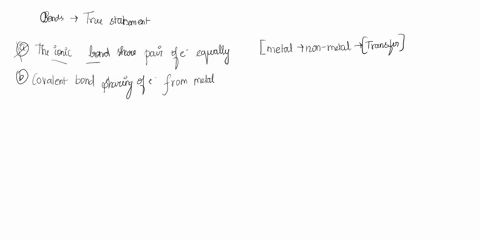 Bonds → True statement
(a) The ionic bond share pair of e⁻ equally [metal → non-metal → [Transfer]
(b) Covalent bond sharing of e⁻ from metal